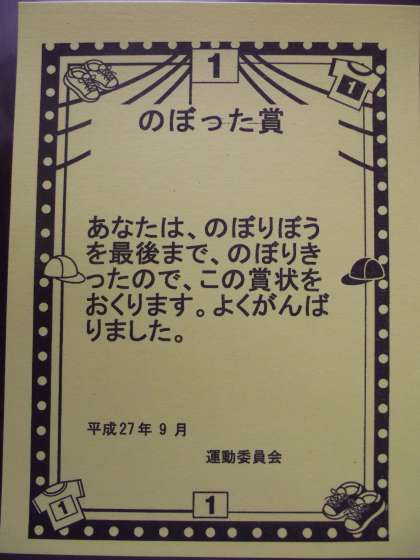 1
1
のぼった賞
あなたは、のぼりぼう
を最後まで、のぼりき
ったので、この賞状を
おくります。よくがんば
りました。
平成27年 9 月
運動委員会
1
1